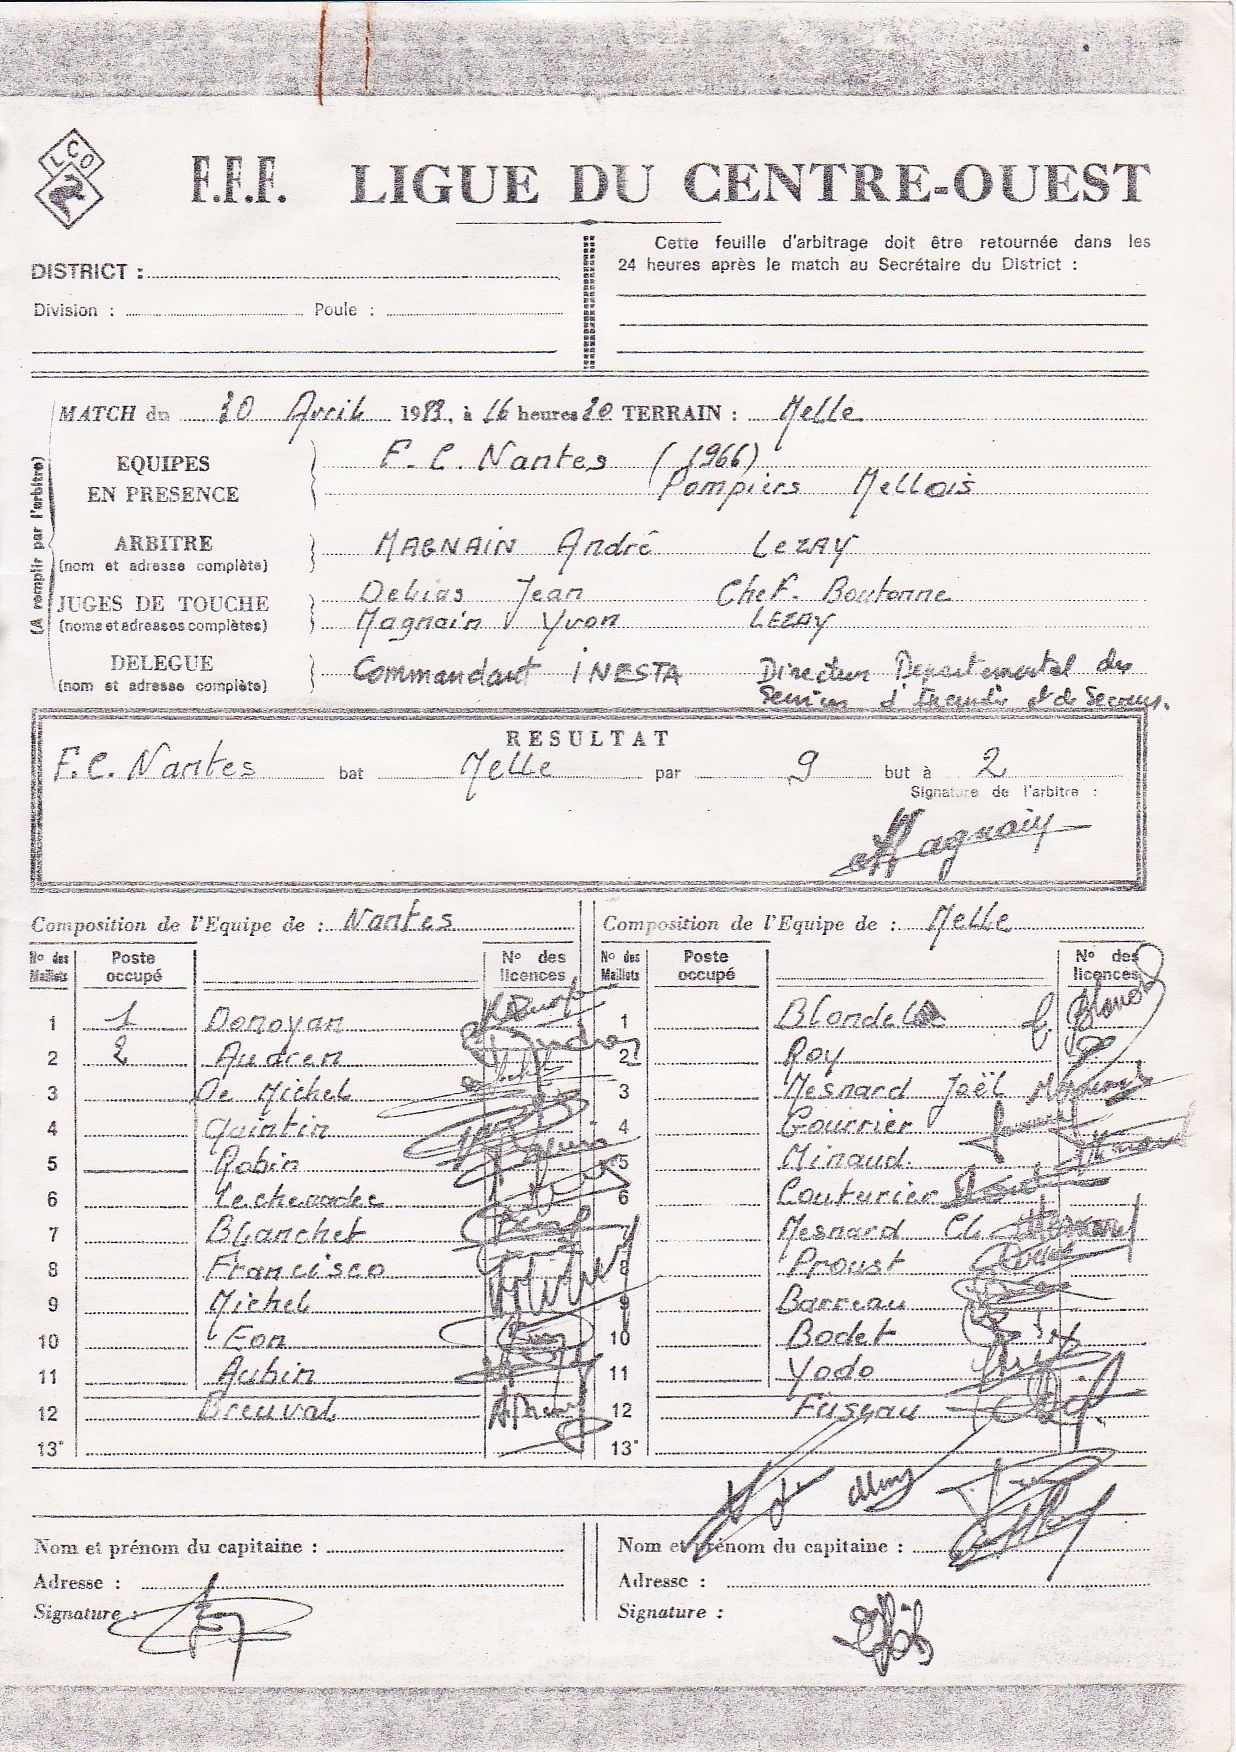 LCO
F.F.F. LIGUE DU CENTRE-OUEST
Cette feuille d'arbitrage doit être retournée dans les
24 heures après le match au Secrétaire du District :
DISTRICT :
Division : Poule :
(A remplir par l'arbitre)
MATCH du 30 Avril 1983, à 16 heures 30 TERRAIN : Melle
EQUIPES
EN PRESENCE
F.C. Nantes (1966)
Pompiers Mellois
ARBITRE
(nom et adresse complète)
MAGNAIN André LEZAY
JUGES DE TOUCHE
(noms et adresses complètes)
Debias Jean Chef. Boutonne
Magnain Yvon LEZAY
DELEGUE
(nom et adresse complète)
Commandant INESTA Directeur Departemental des
Services d'Incendie et de Secours.
RESULTAT
F.C. Nantes bat Melle par 9 but à 2
Signature de l'arbitre :
Magnain
Composition de l'Equipe de : Nantes
Nº des Maillots Poste occupé Nº des licences
1 1 Donoyan
2 2 Audren
3 De Michel
4 Quintin
5 Robin
6 Lechenadec
7 Blanchet
8 Francisco
9 Michel
10 Eon
11 Aubin
12 Breuval
13*
Composition de l'Equipe de : Melle
Nº des Maillots Poste occupé Nº des licences
1 Blondel
2 Roy
3 Mesnard Joël
4 Gourrier
5 Minaud
6 Couturier
7 Mesnard Cl
8 Proust
9 Barreau
10 Bodet
11 Yodo
12 Fuseau
13*
Nom et prénom du capitaine :
Adresse :
Signature :
Nom et prénom du capitaine :
Adresse :
Signature :